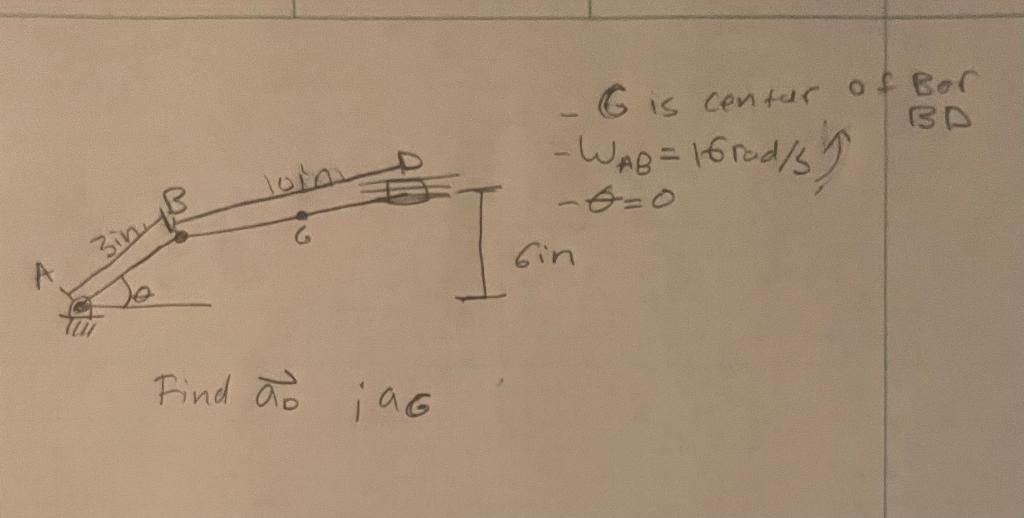 - G is centar of Bar
BD
- WAB = 16 rad/s
- θ = 0
10in.
D
B
3in.
G
A
θ
6in
Find a⃗D ; aG